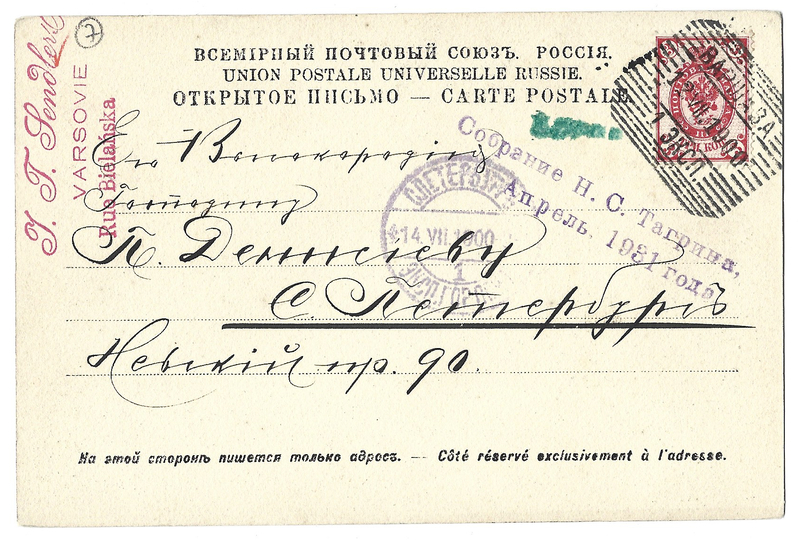 ВСЕМІРНЫЙ ПОЧТОВЫЙ СОЮЗЪ. РОССІЯ.
UNION POSTALE UNIVERSELLE RUSSIE.
ОТКРЫТОЕ ПИСЬМО — CARTE POSTALE
VARSOVIE
Rue Bielańska
7
ВАРШАВА
Собраніе Н. С. Тагрина,
Апрель, 1931 года
С.ПЕТЕРБУРГ
14.VII.1900
1
Его Высокородію
Господину
П. Демчеву
С. Петербургъ
Невскій пр. 90.
На этой сторонѣ пишется только адресъ. — Côté réservé exclusivement à l'adresse.